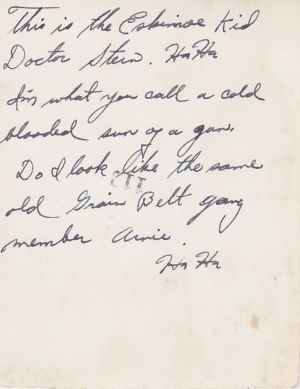 This is the Eskimoe Kid
Doctor Stein. Ha Ha
I'm what you call a cold
blooded sun of a gun.
Do I look like the same
old Grain Belt gang
member Arnie.
Ha Ha